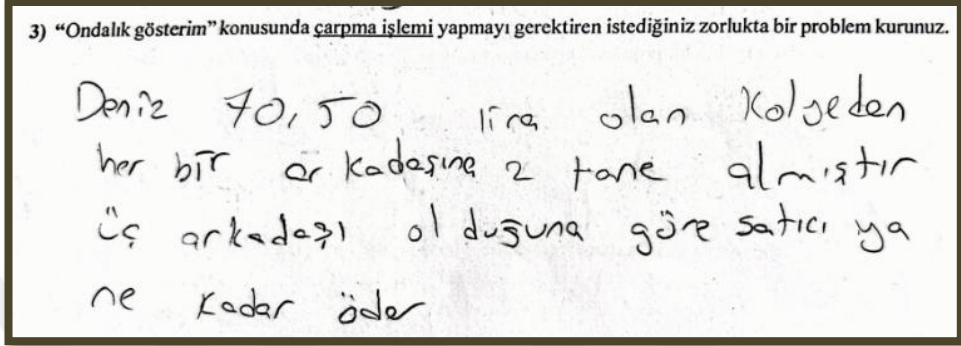 3) “Ondalık gösterim” konusunda çarpma işlemi yapmayı gerektiren istediğiniz zorlukta bir problem kurunuz.
Deniz 70,50 lira olan Kolyeden
her bir arkadaşına 2 tane almıştır
üç arkadaşı olduğuna göre satıcı ya
ne kadar öder